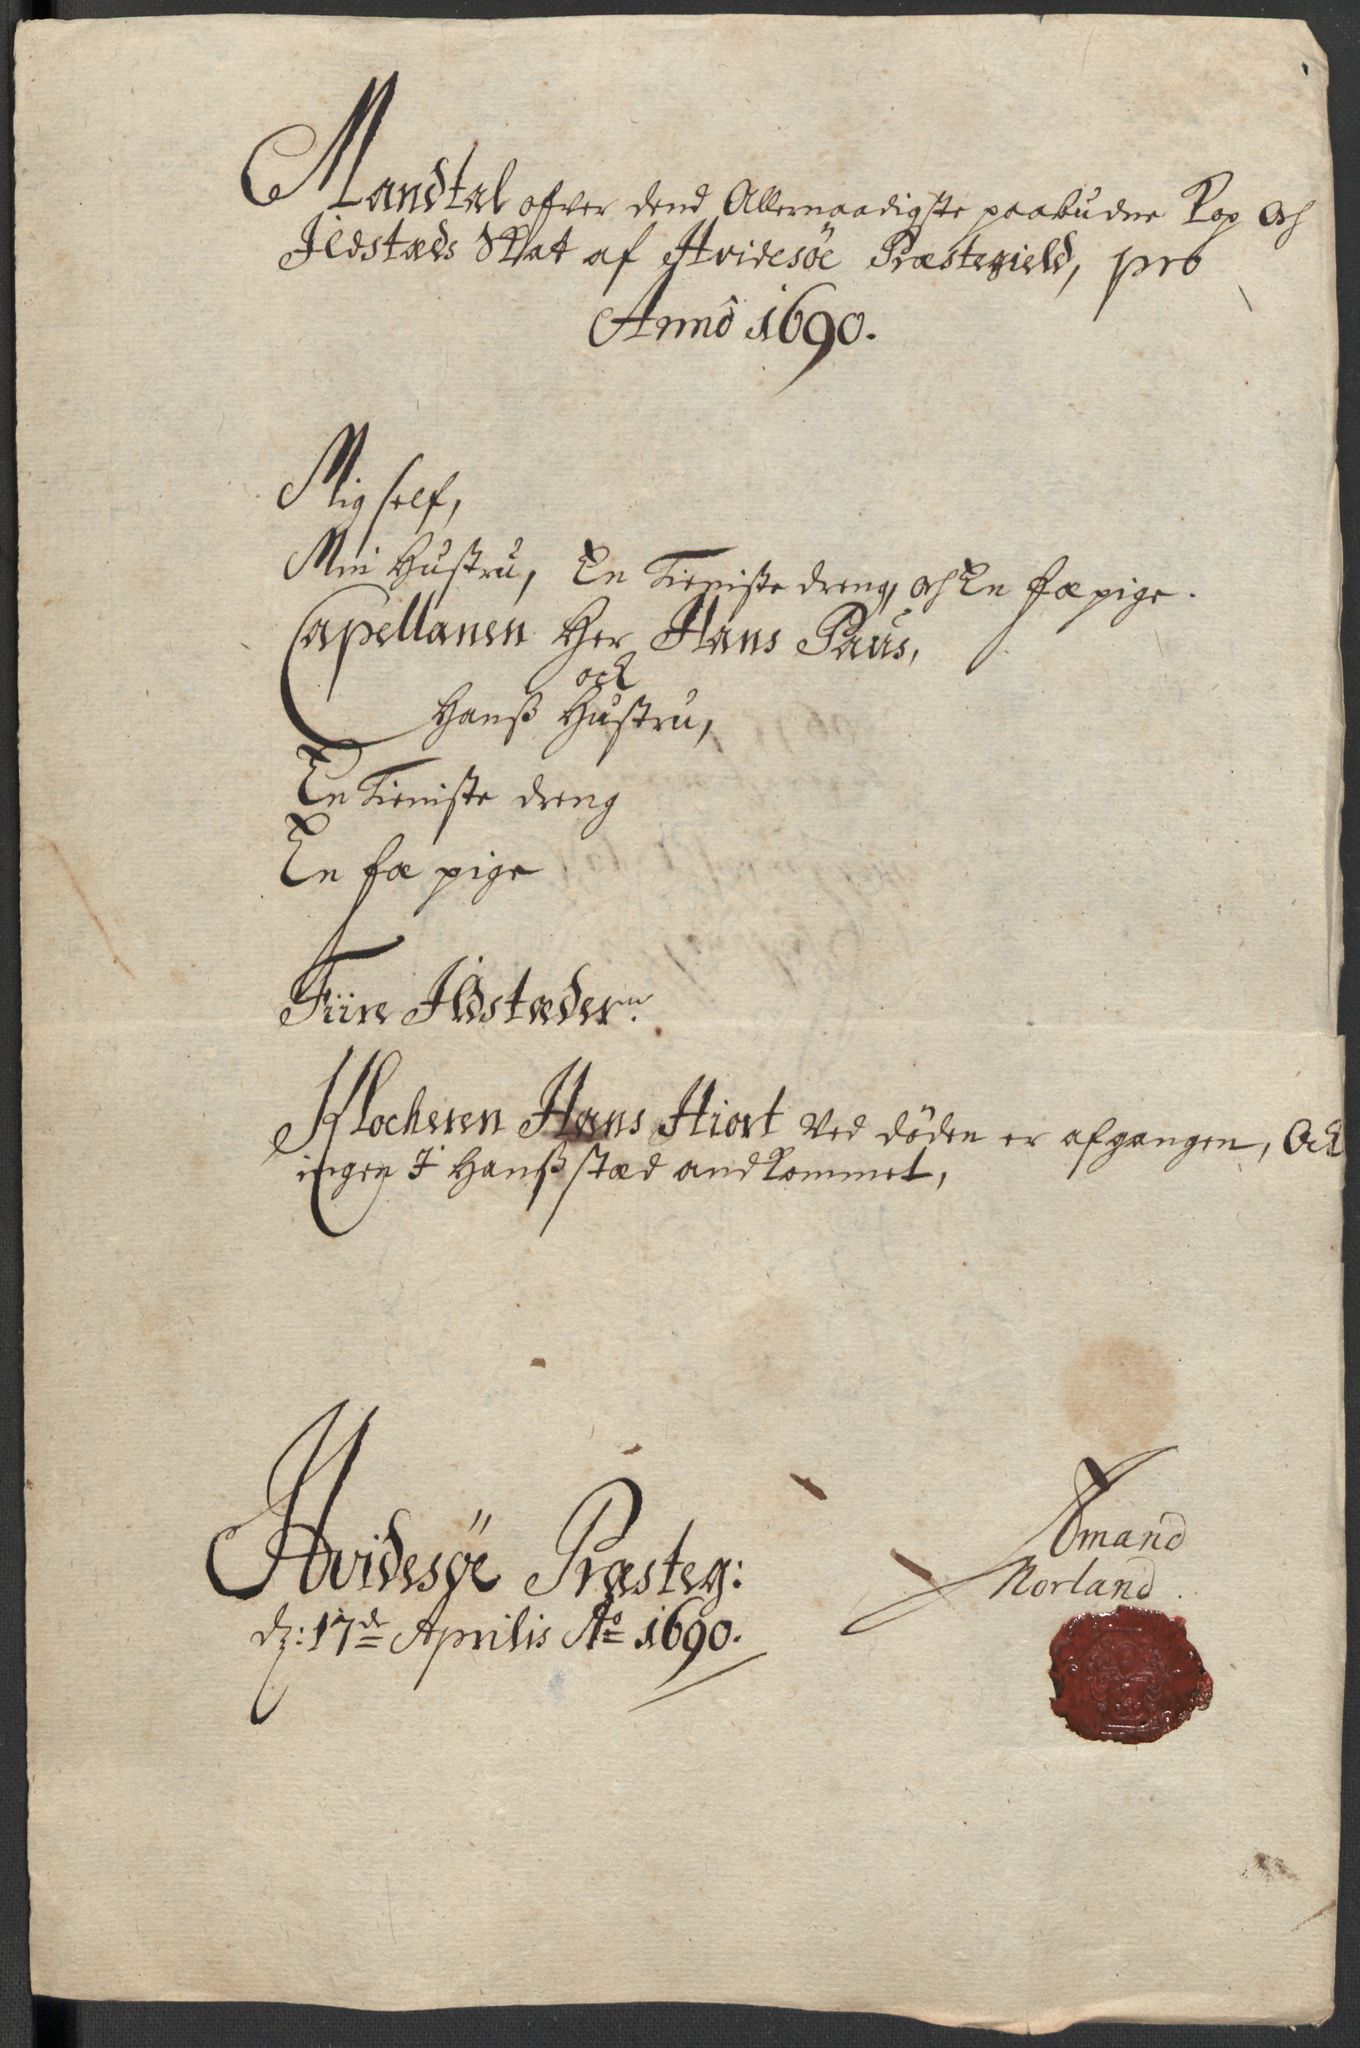 Mandtal ofver dend Allernaadigste paabudne Kop och
Ildstæds Skat af Hvidesøe Præstegield, pro
Anno 1690.
Mig self,
Min Hustru, En Tieniste dreng, och En fæ pige.
Capellanen Her Hans Paus,
ock
Hanß Hustru,
En Tieniste dreng
En fæ pige
Fiire Ildstæder
Klocheren Hans Hiort Ved døden er afgangen, Ock
ingen I Hanß stæd andkommet,
Hvidesøe Præsteg:
d: 17de Aprilis Ao 1690.
Amand
Norland